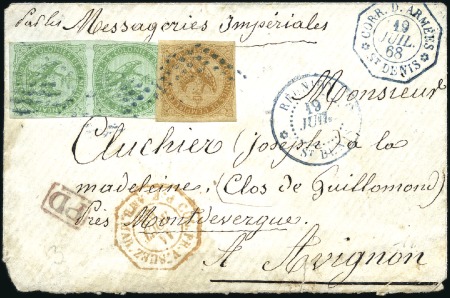 Par les Messageries Impériales
CORR. D. ARMÉES
19
JUIL.
68
ST DENIS
Monsieur
REUNI
19
JUIL
ST DEN
Cluchier (Joseph) à la
madeleine, (Clos de Guillomond)
près Montdevergue.
PD
A Avignon